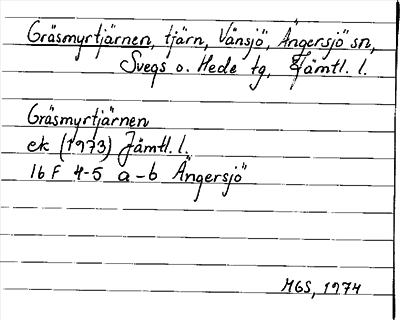 Gräsmyrtjärnen, tjärn, Vänsjö, Ängersjö sn,
Svegs o. Hede tg, Jämtl. l.
Gräsmyrtjärnen
ek (1973) Jämtl. l.
16 F 4-5 a-b Ängersjö
MGS, 1974